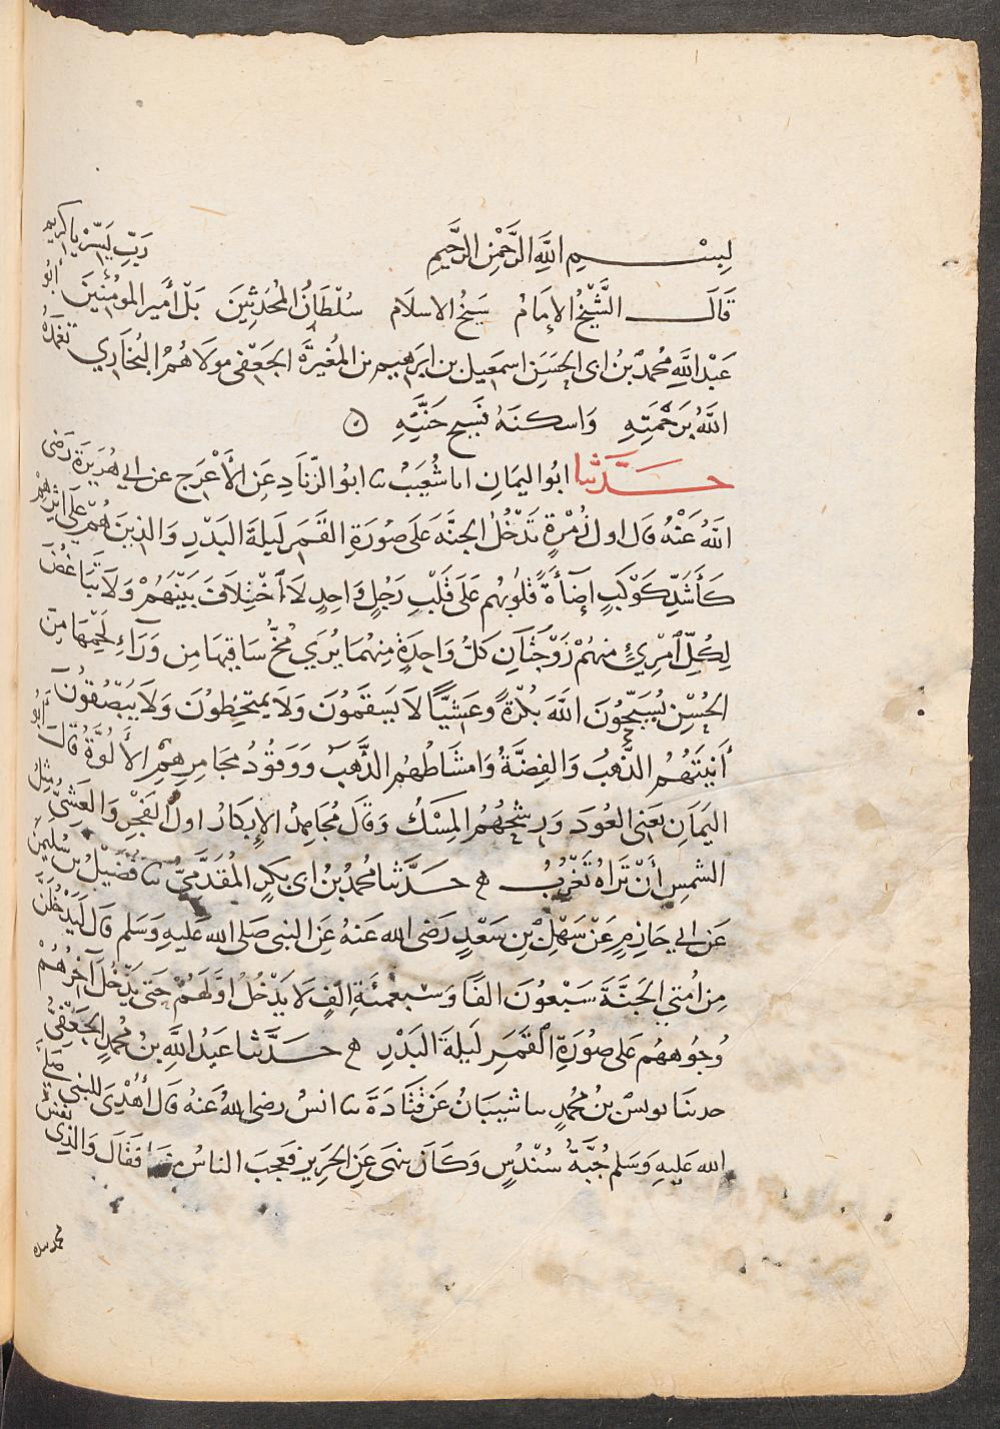 بِسْمِ اللَّهِ الرَّحْمٰنِ الرَّحِيمِ رَبِّ يَسِّرْ يا كريم
قَالَ الشَّيْخُ الإِمَامُ شَيخُ الاسلَام سُلْطَانُ المُحَدِثِينَ بَلْ أَمير المومُنِينَ أبُو
عَبْد اللَّهِ مُحمدُ بْنُ ابى الحَسَنِ اسمَعِيل بن ابرَهِيم بن المُغيرَةَ الجَعْفى مولَاهُمُ البُخَارِي تغمدَهُ
اللَّهُ بِرَحْمَتِهِ وَاسكنَهُ فَسِيح جَنَّتِهِ
حَدَّثَنا ابوُ اليمَانِ انا شُعَيبُ نا ابوُ الزّنَادِ عَنِ الأَعْرَج عن ابي هُرَيرَةَ رَضى
اللَّهُ عَنْهُ قَال اول زُمْرةٍ تَدْخُلُ الجنَّهَ عَلَى صُورَةِ القَمَر لَيلةَ البَدْرِ وَالذينَ هُمْ عَلَى اثرِهِمْ
كَأَشَدِّ كَوْكَبٍ إضَأَةً قلُوبُهم عَلَى قَلْبِ رَجُلٍ وَاحِدٍ لَا اخْتِلَافَ بَيْنَهُمْ وَلَا تَبَاغُضَ
لِكُلِّ امْرِئٍ منهُمْ زَوْجَتَانِ كلُّ وَاحِدَةٍ مِنهُمَا يُرَي مُخُّ سَاقِهَا مِن وَرَآءِ لَحْمِهَا مِنَ
الحُسْنِ يُسَبِّحُونَ اللَّهَ بُكْرَةً وعَشيَّاً لَا يَسقَمُونَ وَلَا يمتَخِطُونَ وَلَا يَبْصُقُونَ
أنِيَتَهُمُ الذَّهبُ وَالفِضَّةُ وَامشَاطُهُم الذَّهَبُ وَوَقُودُ مجَامِرِهِمُ الأَلُوَّةُ قَالَ أَبُو
اليَمَانِ يَعنى العُودَ وَرشحُهُمُ المِسْكُ وَقَال مُجَاهِدٌ الإِبكَارُ اولُ الفَجْرِ وَالعَشِيُّ مَيْلُ
الشمسِ أَنْ تَرَاهُ تَغْرُبُ ه حَدَّثنا مُحمدُ بْنُ ابى بَكرٍ المُقَدَّمِيُّ نا فُضَيْلُ بن سُلَيمنَ
عَن ابي حَازِمٍ عَنْ سَهْلِ بْنِ سَعْدٍ رَضى الله عَنهُ عَنِ النبى صَلى الله عَليهِ وَسَلم قَال لَيَدْخُلَنَّ
مِن امُتي الجَنَّةَ سَبْعُونَ الفًا وَسَبعمئَةِ الفٍ لَا يدْخُلُ اوَّلَهُمْ حَتى يَدْخُلَ آخِرُهُمْ
وُجُوههُم عَلى صُورَةِ القَمَرِ لَيلةَ البَدْرِ ه حَدَّثنا عَبدُ اللَّهِ بنُ مُحمدٍ الجَعفِيُّ
حدثنَا يونسُ بنُ محُمدٍ نا شيبَانُ عَن قَتَادَةَ نا انسُ رضى اللهُ عَنهُ قَال أُهْدِىَ للنبى صَلى
الله عَليهِ وَسَلم جُبَّةُ سُنْدُسٍ وَكَانَ ينهى عَنِ الحَرِيرِ فعَجِبَ الناسُ منهَا فَقَالَ وَالذِى نفسُ
محمد بيده